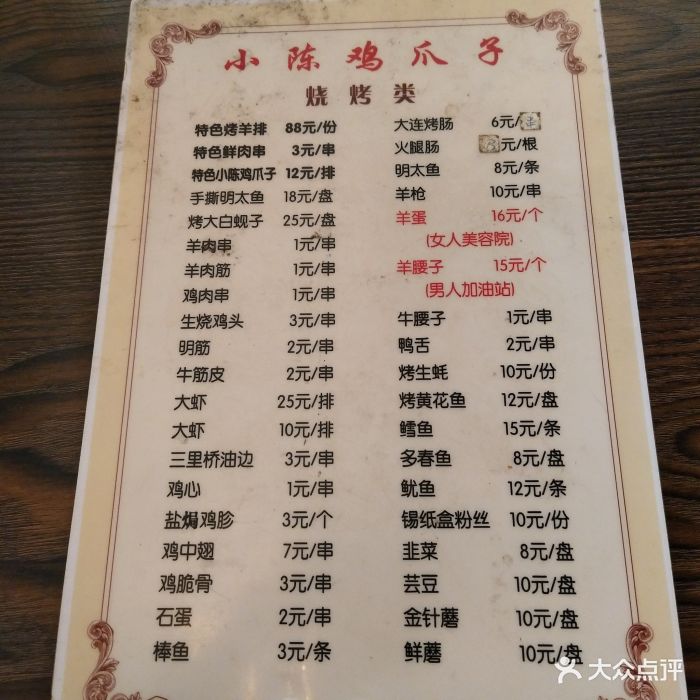 小陈鸡爪子
烧烤类
特色烤羊排 88元/份
特色鲜肉串 3元/串
特色小陈鸡爪子 12元/排
手撕明太鱼 18元/盘
烤大白蚬子 25元/盘
羊肉串 1元/串
羊肉筋 1元/串
鸡肉串 1元/串
生烧鸡头 3元/串
明筋 2元/串
牛筋皮 2元/串
大虾 25元/排
大虾 10元/排
三里桥油边 3元/串
鸡心 1元/串
盐焗鸡胗 3元/个
鸡中翅 7元/串
鸡脆骨 3元/串
石蛋 2元/串
棒鱼 3元/条
大连烤肠 6元/串
火腿肠 元/根
明太鱼 8元/条
羊枪 10元/串
羊蛋 16元/个
(女人美容院)
羊腰子 15元/个
(男人加油站)
牛腰子 1元/串
鸭舌 2元/串
烤生蚝 10元/份
烤黄花鱼 12元/盘
鳕鱼 15元/条
多春鱼 8元/盘
鱿鱼 12元/条
锡纸盒粉丝 10元/份
韭菜 8元/盘
芸豆 10元/盘
金针蘑 10元/盘
鲜蘑 10元/盘
大众点评